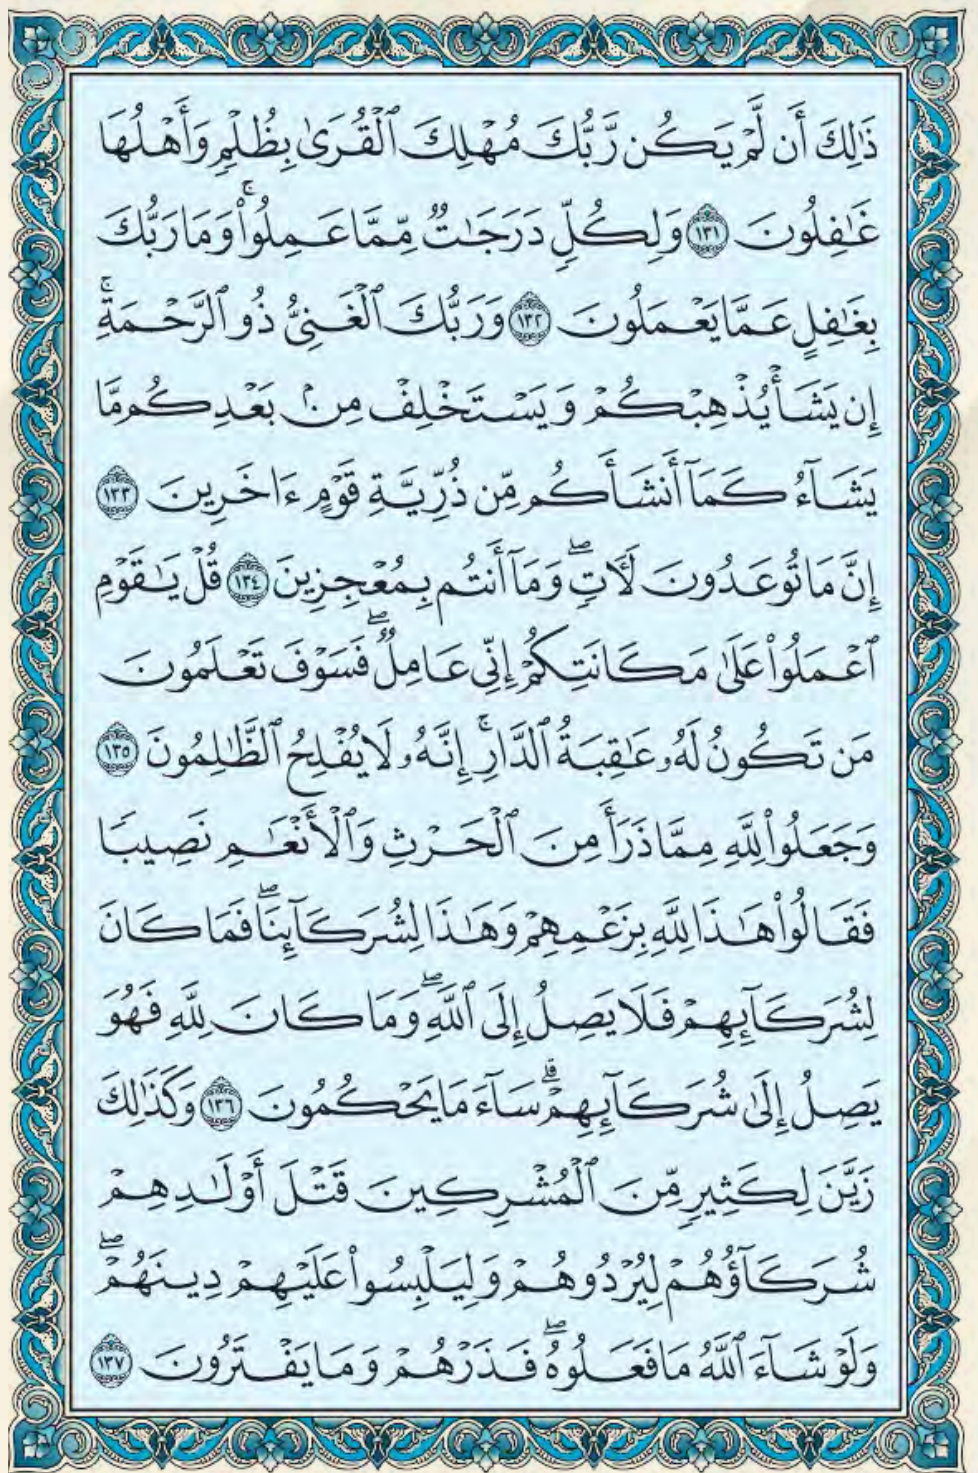 ذَٰلِكَ أَن لَّمْ يَكُن رَّبُّكَ مُهْلِكَ ٱلْقُرَىٰ بِظُلْمٍ وَأَهْلُهَا
غَٰفِلُونَ ١٣١ وَلِكُلٍّ دَرَجَٰتٌ مِّمَّا عَمِلُوا۟ ۚ وَمَا رَبُّكَ
بِغَٰفِلٍ عَمَّا يَعْمَلُونَ ١٣٢ وَرَبُّكَ ٱلْغَنِىُّ ذُو ٱلرَّحْمَةِ ۚ
إِن يَشَأْ يُذْهِبْكُمْ وَيَسْتَخْلِفْ مِنۢ بَعْدِكُم مَّا
يَشَآءُ كَمَآ أَنشَأَكُم مِّن ذُرِّيَّةِ قَوْمٍ ءَاخَرِينَ ١٣٣
إِنَّ مَا تُوعَدُونَ لَءَاتٍ ۖ وَمَآ أَنتُم بِمُعْجِزِينَ ١٣٤ قُلْ يَٰقَوْمِ
ٱعْمَلُوا۟ عَلَىٰ مَكَانَتِكُمْ إِنِّى عَامِلٌ ۖ فَسَوْفَ تَعْلَمُونَ
مَن تَكُونُ لَهُۥ عَٰقِبَةُ ٱلدَّارِ ۚ إِنَّهُۥ لَا يُفْلِحُ ٱلظَّٰلِمُونَ ١٣٥
وَجَعَلُوا۟ لِلَّهِ مِمَّا ذَرَأَ مِنَ ٱلْحَرْثِ وَٱلْأَنْعَٰمِ نَصِيبًا
فَقَالُوا۟ هَٰذَا لِلَّهِ بِزَعْمِهِمْ وَهَٰذَا لِشُرَكَآئِنَا ۖ فَمَا كَانَ
لِشُرَكَآئِهِمْ فَلَا يَصِلُ إِلَى ٱللَّهِ ۖ وَمَا كَانَ لِلَّهِ فَهُوَ
يَصِلُ إِلَىٰ شُرَكَآئِهِمْ ۗ سَآءَ مَا يَحْكُمُونَ ١٣٦ وَكَذَٰلِكَ
زَيَّنَ لِكَثِيرٍ مِّنَ ٱلْمُشْرِكِينَ قَتْلَ أَوْلَٰدِهِمْ
شُرَكَآؤُهُمْ لِيُرْدُوهُمْ وَلِيَلْبِسُوا۟ عَلَيْهِمْ دِينَهُمْ ۖ
وَلَوْ شَآءَ ٱللَّهُ مَا فَعَلُوهُ ۖ فَذَرْهُمْ وَمَا يَفْتَرُونَ ١٣٧